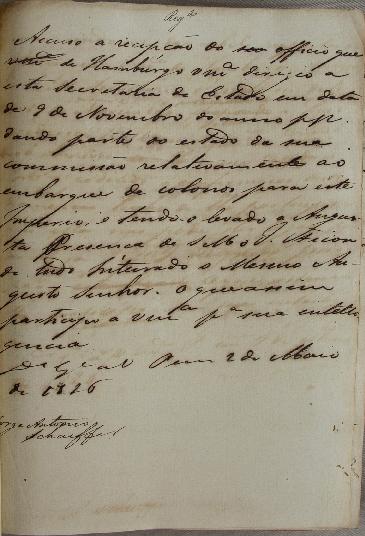 Regdo
Accuso a recepção do seo officio que
de Hamburgo Vmce dirigio a
esta Secretaria de Estado em data
de 9 de Novembro do anno p.p.
dando parte do estado da sua
commissão relativamente ao
embarque de colonos para este
Imperio, e tendo-o levado a Augus-
ta Presença de S. M. o I. ficou
de tudo inteirado o Mesmo Au-
gusto Senhor. O que assim
participo a Vmce pa sua intelli
gencia.
2 de Maio
de 1826
Antonio
Schaeffer